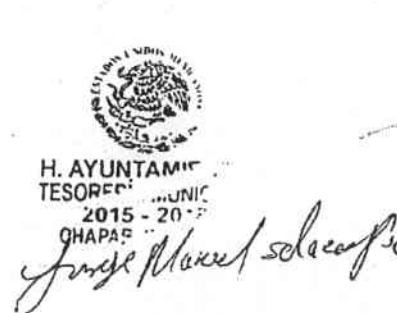 ESTADOS UNIDOS MEXICANOS
H. AYUNTAMIE
TESORER MUNIC
2015 - 20
CHAPA
Jorge Manuel